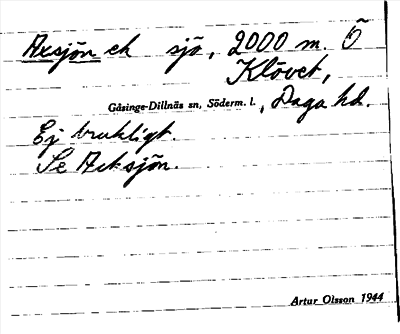 Axsjön ek sjö, 2000 m. Ö
Klövet,
Gåsinge-Dillnäs sn, Söderm. l., Daga hd.
Ej brukligt.
Se Acksjön.
Artur Olsson 1944